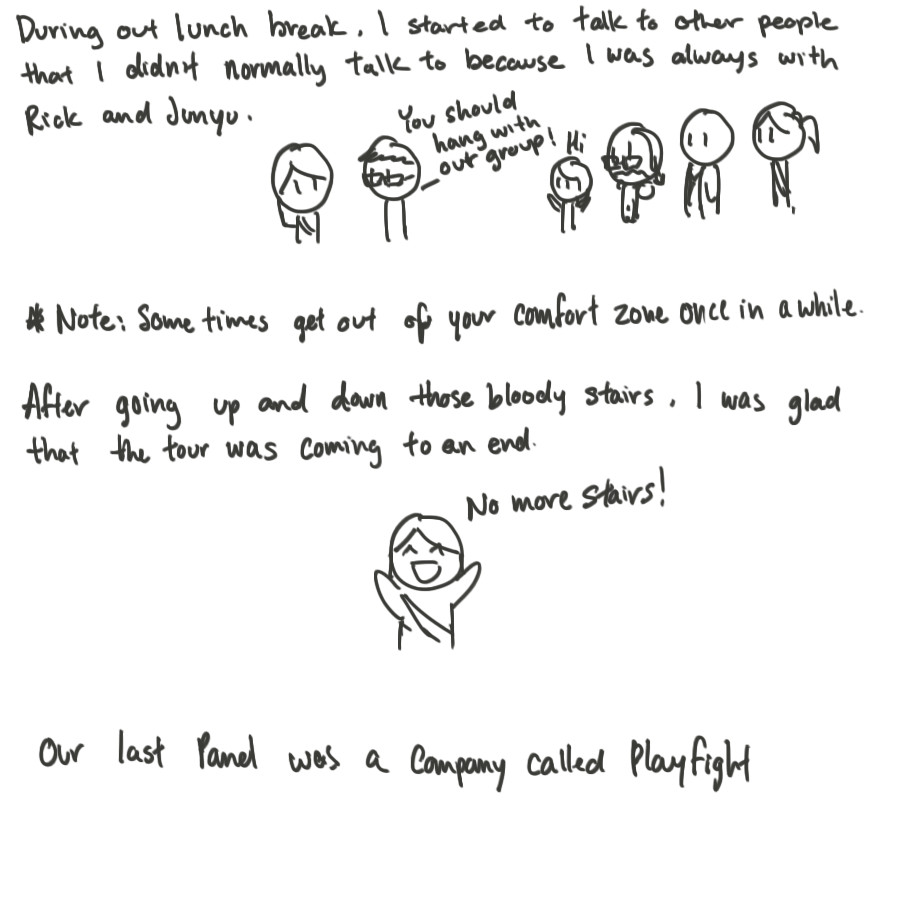 During out lunch break, I started to talk to other people
that I didn't normally talk to because I was always with
Rick and Junyu.
You should
hang with
out group!
Hi
* Note: Sometimes get out of your comfort zone once in a while.
After going up and down those bloody stairs, I was glad
that the tour was coming to an end.
No more stairs!
Our last Panel was a Company called Playfight